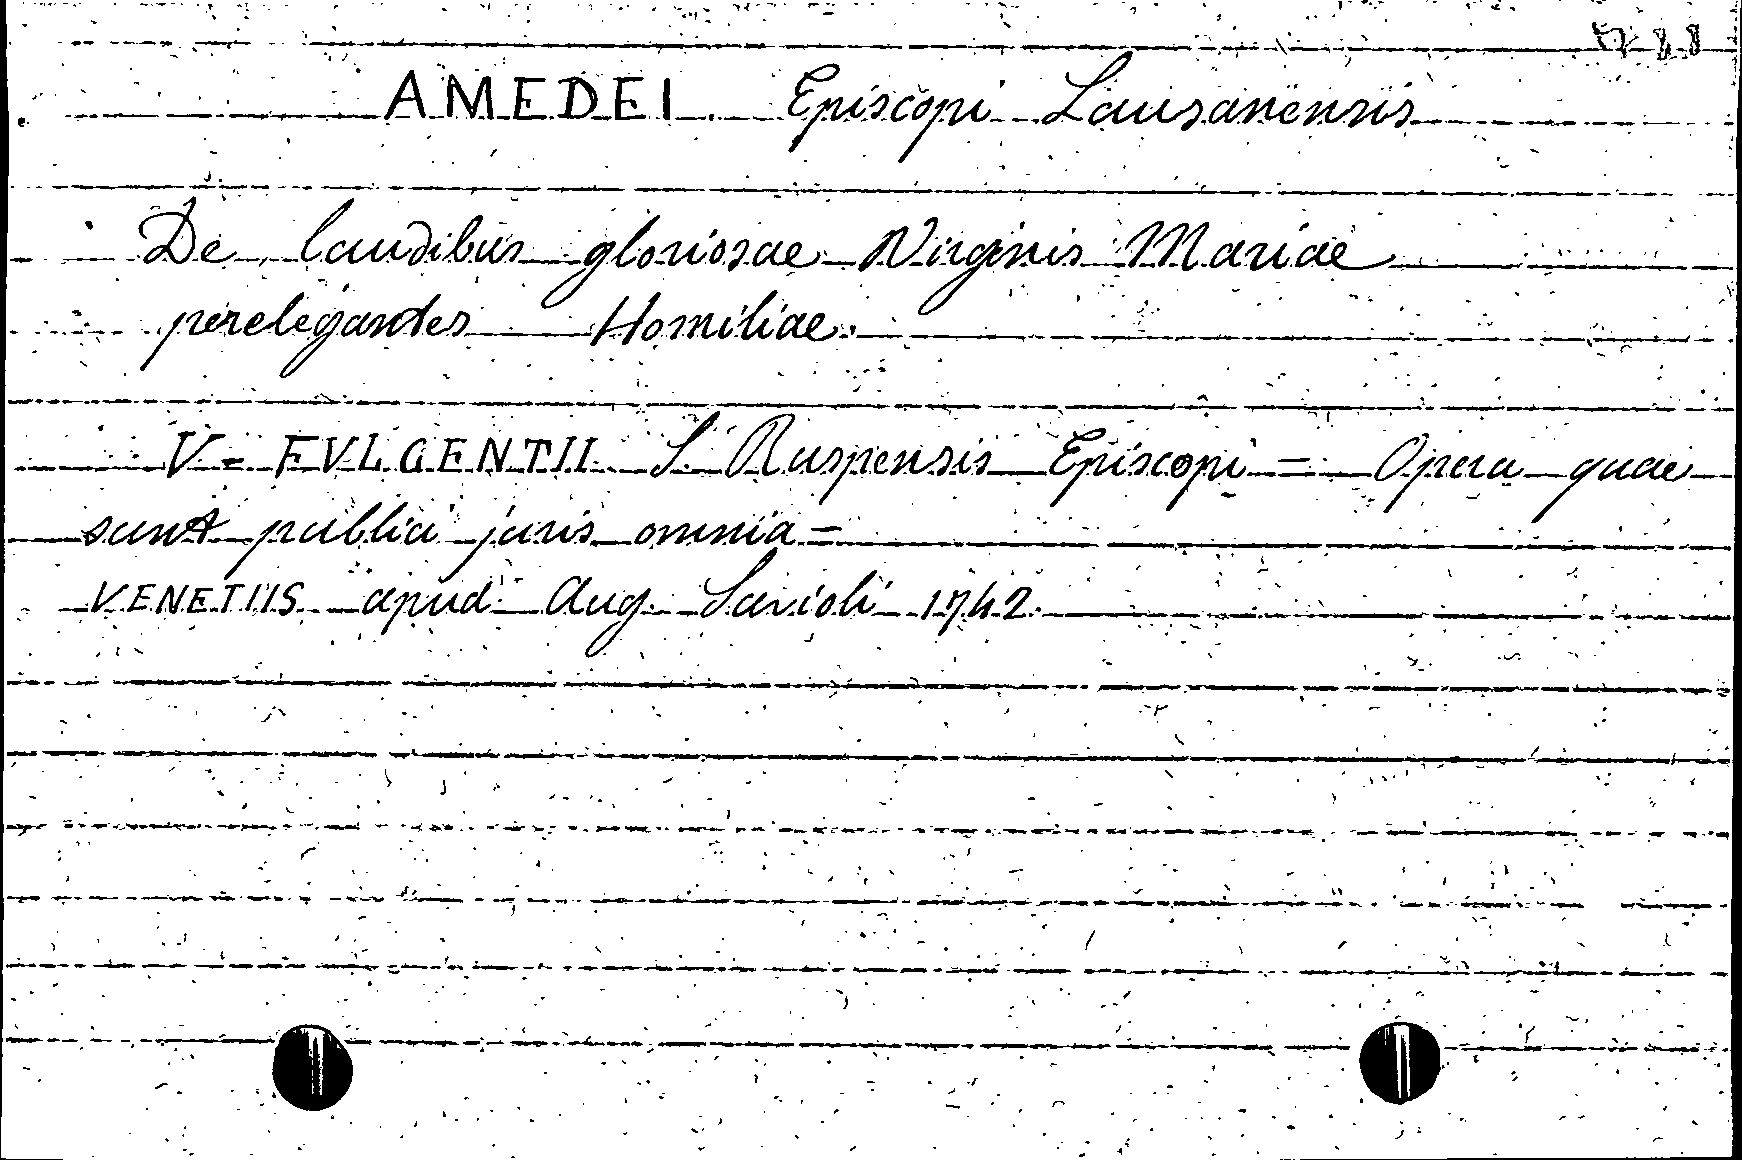 AMEDEI Episcopi Lausanensis
De laudibus gloriosae Virginis Mariae
perelegantes Homiliae.
V- FVLGENTII S. Ruspensis Episcopi = Opera quae
sunt publici juris omnia =
VENETIIS apud Aug. Savioli 1742.